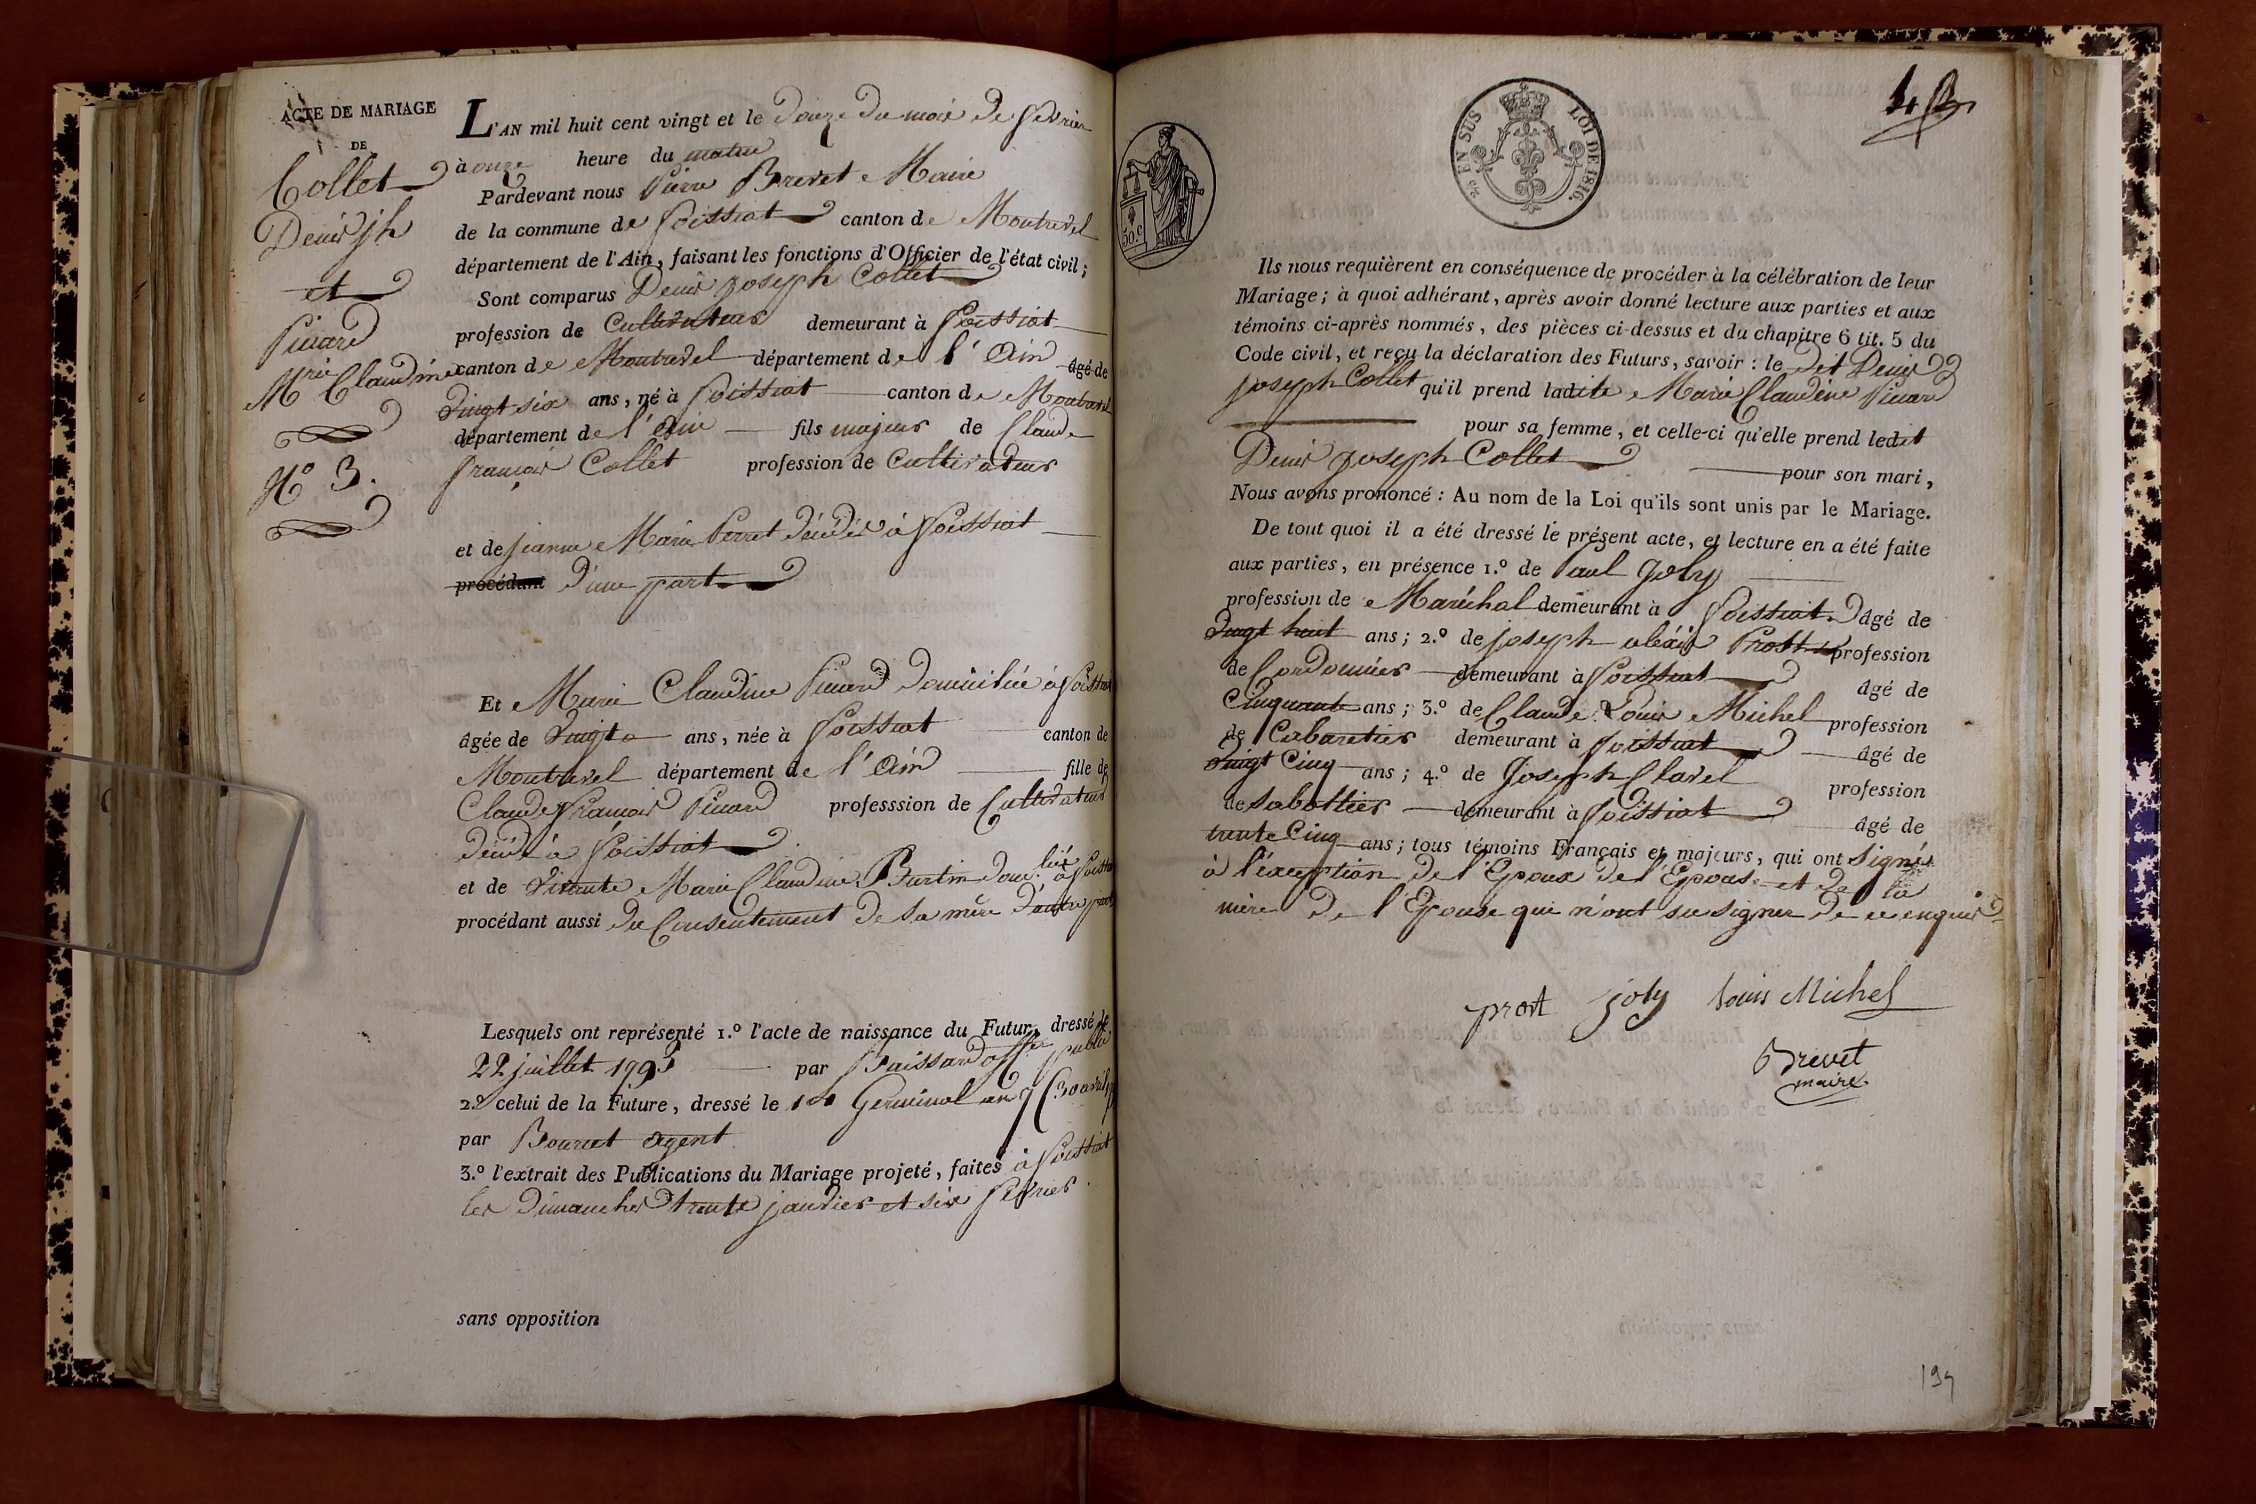 ACTE DE MARIAGE
DE
Collet
Denis jh
et
Picard
Mrie Claudine
N° 3.
L'AN mil huit cent vingt et le douze du mois de février
à onze heure du matin
Pardevant nous Pierre Brevet Maire
de la commune de Foissiat canton de Montrevel
département de l'Ain, faisant les fonctions d'Officier de l'état civil;
Sont comparus Denis joseph Collet
profession de Cultivateur demeurant à Foissiat
canton de Montrevel département de l'Ain âgé de
vingt six ans, né à Foissiat canton de Montrevel
département de l'Ain fils majeur de Claude
françois Collet profession de Cultivateur
et de jeanne Marie Perret décédée à Foissiat
procédant d'une part
Et Marie Claudine Picard domiciliée à Foissiat
âgée de vingt ans, née à Foissiat canton de
Montrevel département de l'Ain fille de
Claude François Picard professsion de Cultivateur
décédé à Foissiat
et de vivante Marie Claudine Burtin domiciliée à Foissiat
procédant aussi du Consentement de sa mère d'autre part
Lesquels ont représenté 1.° l'acte de naissance du Futur, dressé le
22 juillet 1793 par officier public
2.° celui de la Future, dressé le Germinal an
par agent
3.° l'extrait des Publications du Mariage projeté, faites à Foissiat
les dimanches trente janvier et six février
sans opposition
EN SUS LOI DE 1816.
50.c
Ils nous requièrent en conséquence de procéder à la célébration de leur
Mariage; à quoi adhérant, après avoir donné lecture aux parties et aux
témoins ci-après nommés, des pièces ci-dessus et du chapitre 6 tit. 5 du
Code civil, et reçu la déclaration des Futurs, savoir: le dit Denis
joseph Collet qu'il prend ladite Marie Claudine Picard
pour sa femme, et celle-ci qu'elle prend ledit
Denis joseph Collet pour son mari,
Nous avons prononcé: Au nom de la Loi qu'ils sont unis par le Mariage.
De tout quoi il a été dressé le présent acte, et lecture en a été faite
aux parties, en présence 1.° de Paul Joly
profession de Maréchal demeurant à Foissiat âgé de
vingt huit ans; 2.° de joseph alexis Prost profession
de Cordonnier demeurant à Foissiat âgé de
Cinquante ans; 3.° de Claude Louis Michel profession
de Cabaretier demeurant à Foissiat âgé de
vingt Cinq ans; 4.° de Joseph Clavel profession
de sabottier demeurant à Foissiat âgé de
trente Cinq ans; tous témoins Français et majeurs, qui ont signé
à l'exception de l'Epoux de l'Epouse et de la
mère de l'Epouse qui n'ont su signer de ce enquis
prost joly Louis Michel
Brevet
maire